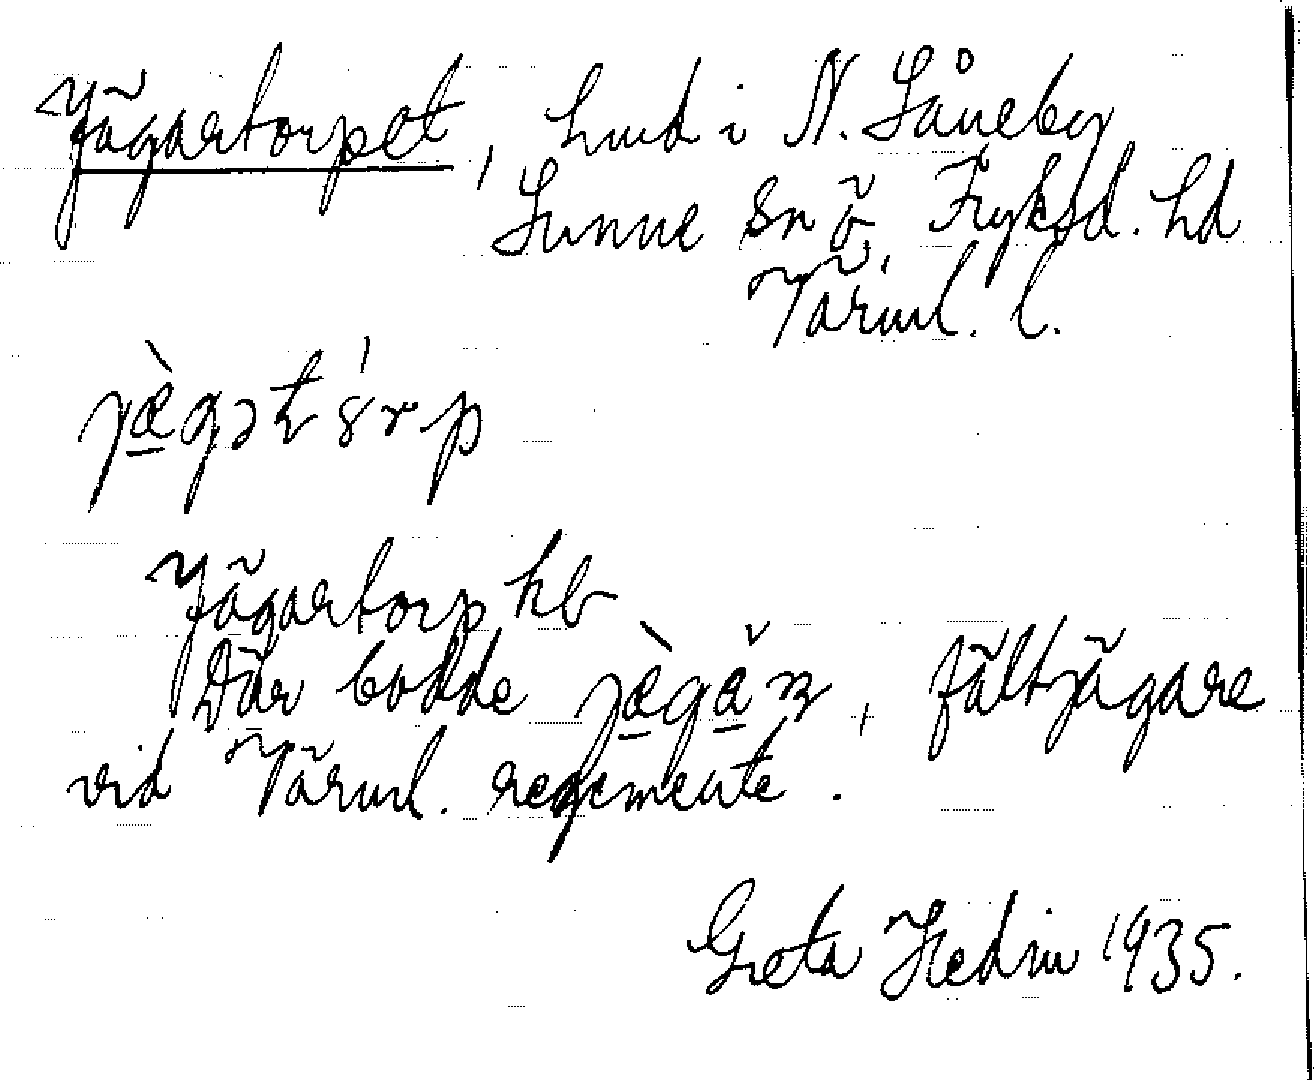 Jägartorpet, hmd i N. Låneby
Sunne sn ö. Fryksd. hd
Värml. l.
Jägartorp kb
Där bodde , fältjägare
vid Värml. regemente.
Greta Hedin 1935.